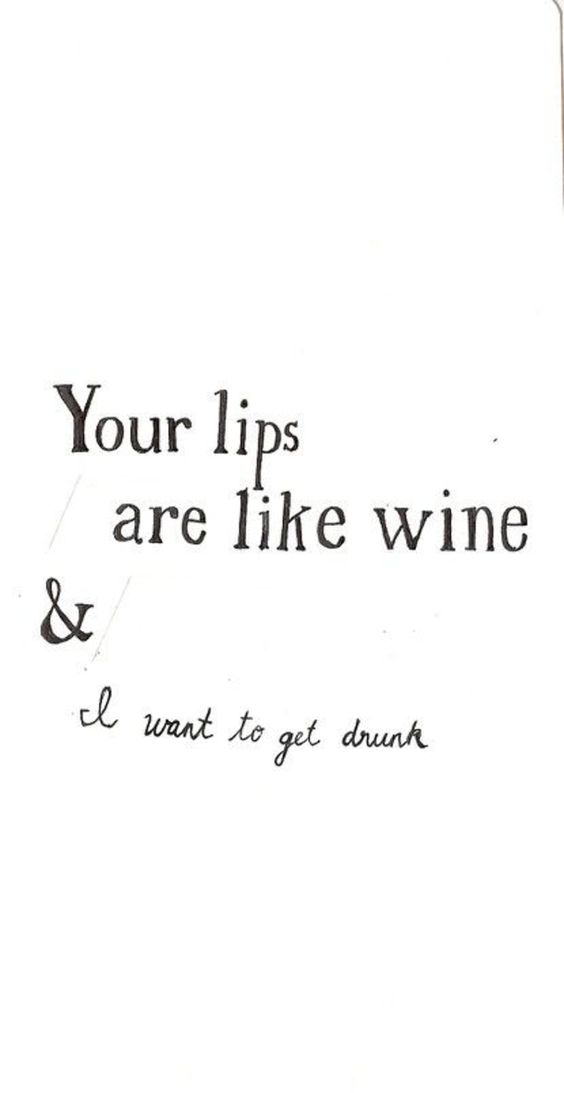 Your lips
are like wine
&
I want to get drunk